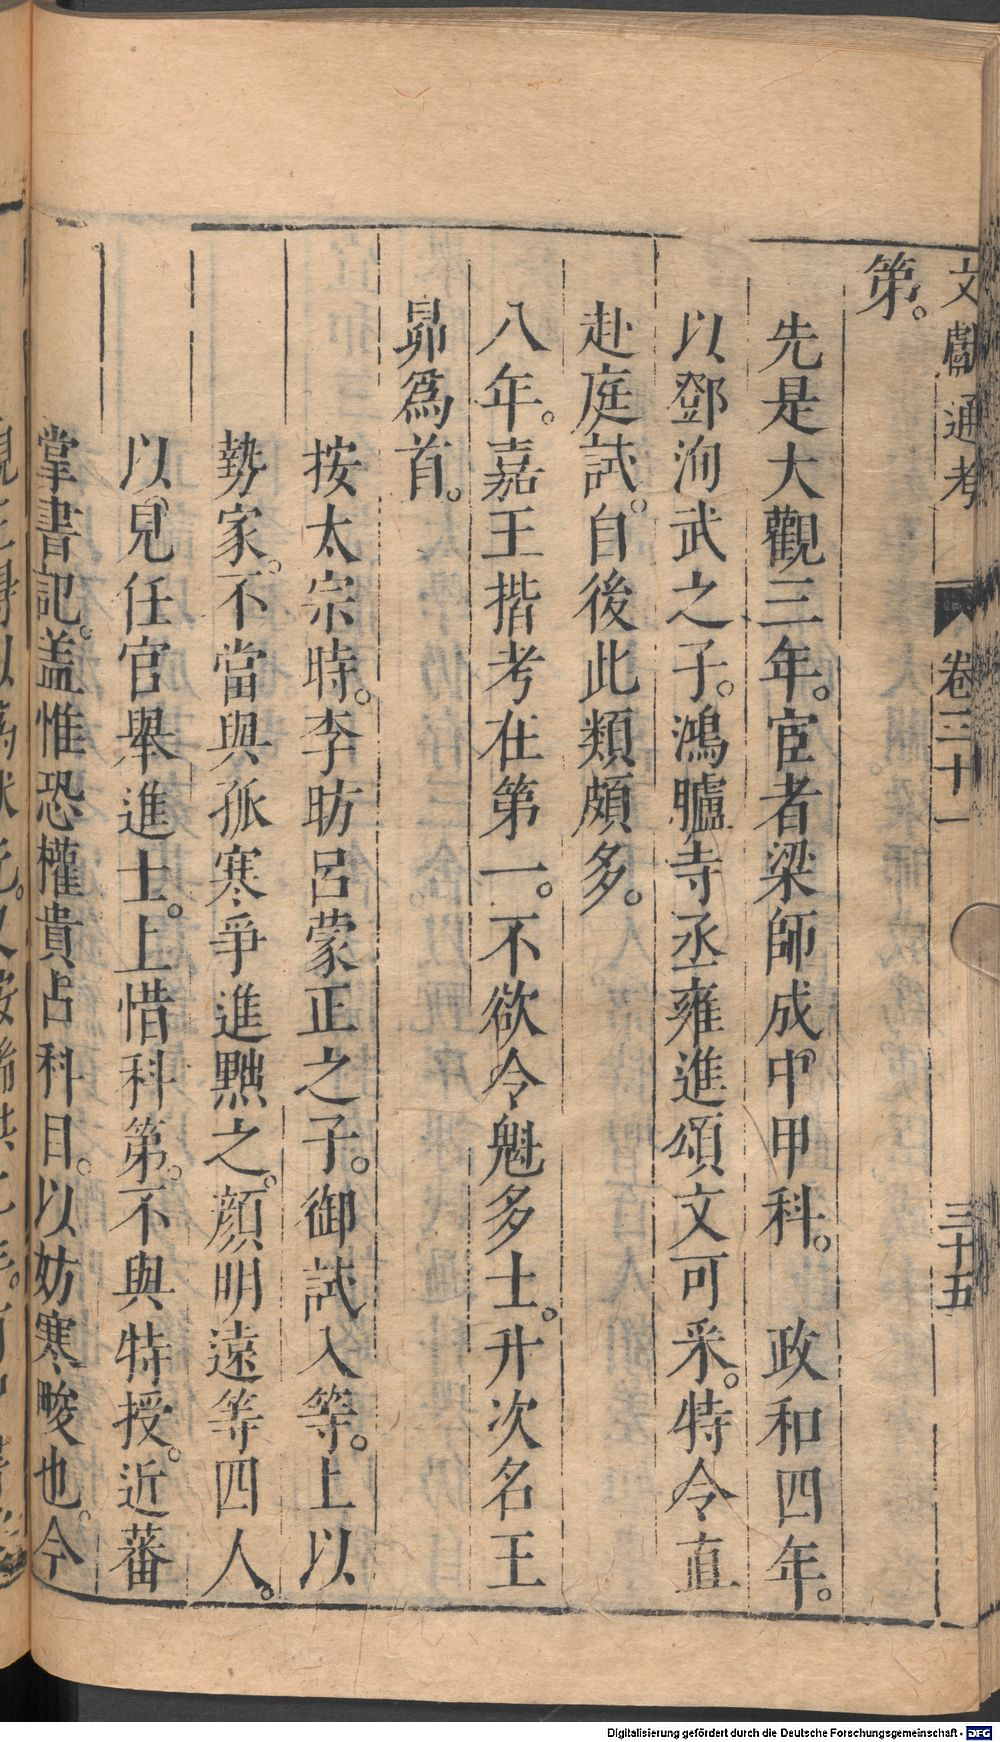 文獻通考 卷三十一 三十五
第。
先是大觀三年。宦者梁師成中甲科。 政和四年。
以鄧洵武之子。鴻臚寺丞雍進頌文可采。特令直
赴庭試。自後此類頗多。
八年。嘉王揩考在第一。不欲令魁多士。升次名王
昴爲首。
按太宗時。李昉呂蒙正之子。御試入等。上以
勢家。不當與孤寒爭進黜之。顔明遠等四人。
以見任官舉進士。上惜科第。不與特授。近蕃
掌書記。盖惟恐權貴占科目。以妨寒畯也。今
Digitalisierung gefördert durch die Deutsche Forschungsgemeinschaft - DFG